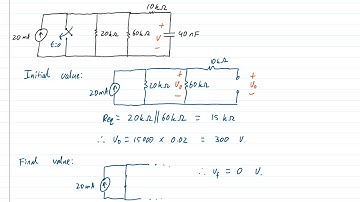 10kΩ
20mA t=0 20kΩ 60kΩ + V - 40nF
Initial value:
10kΩ
20mA 20kΩ + V₀ - 60kΩ + V₀ -
Req = 20kΩ || 60kΩ = 15kΩ
∴ V₀ = 15000 × 0.02 = 300 V.
Final value:
20mA
∴ Vf = 0 V.